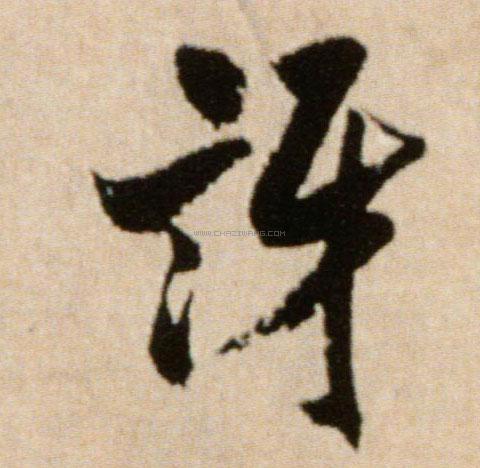 訝
WWW.CHAZIWANG.COM